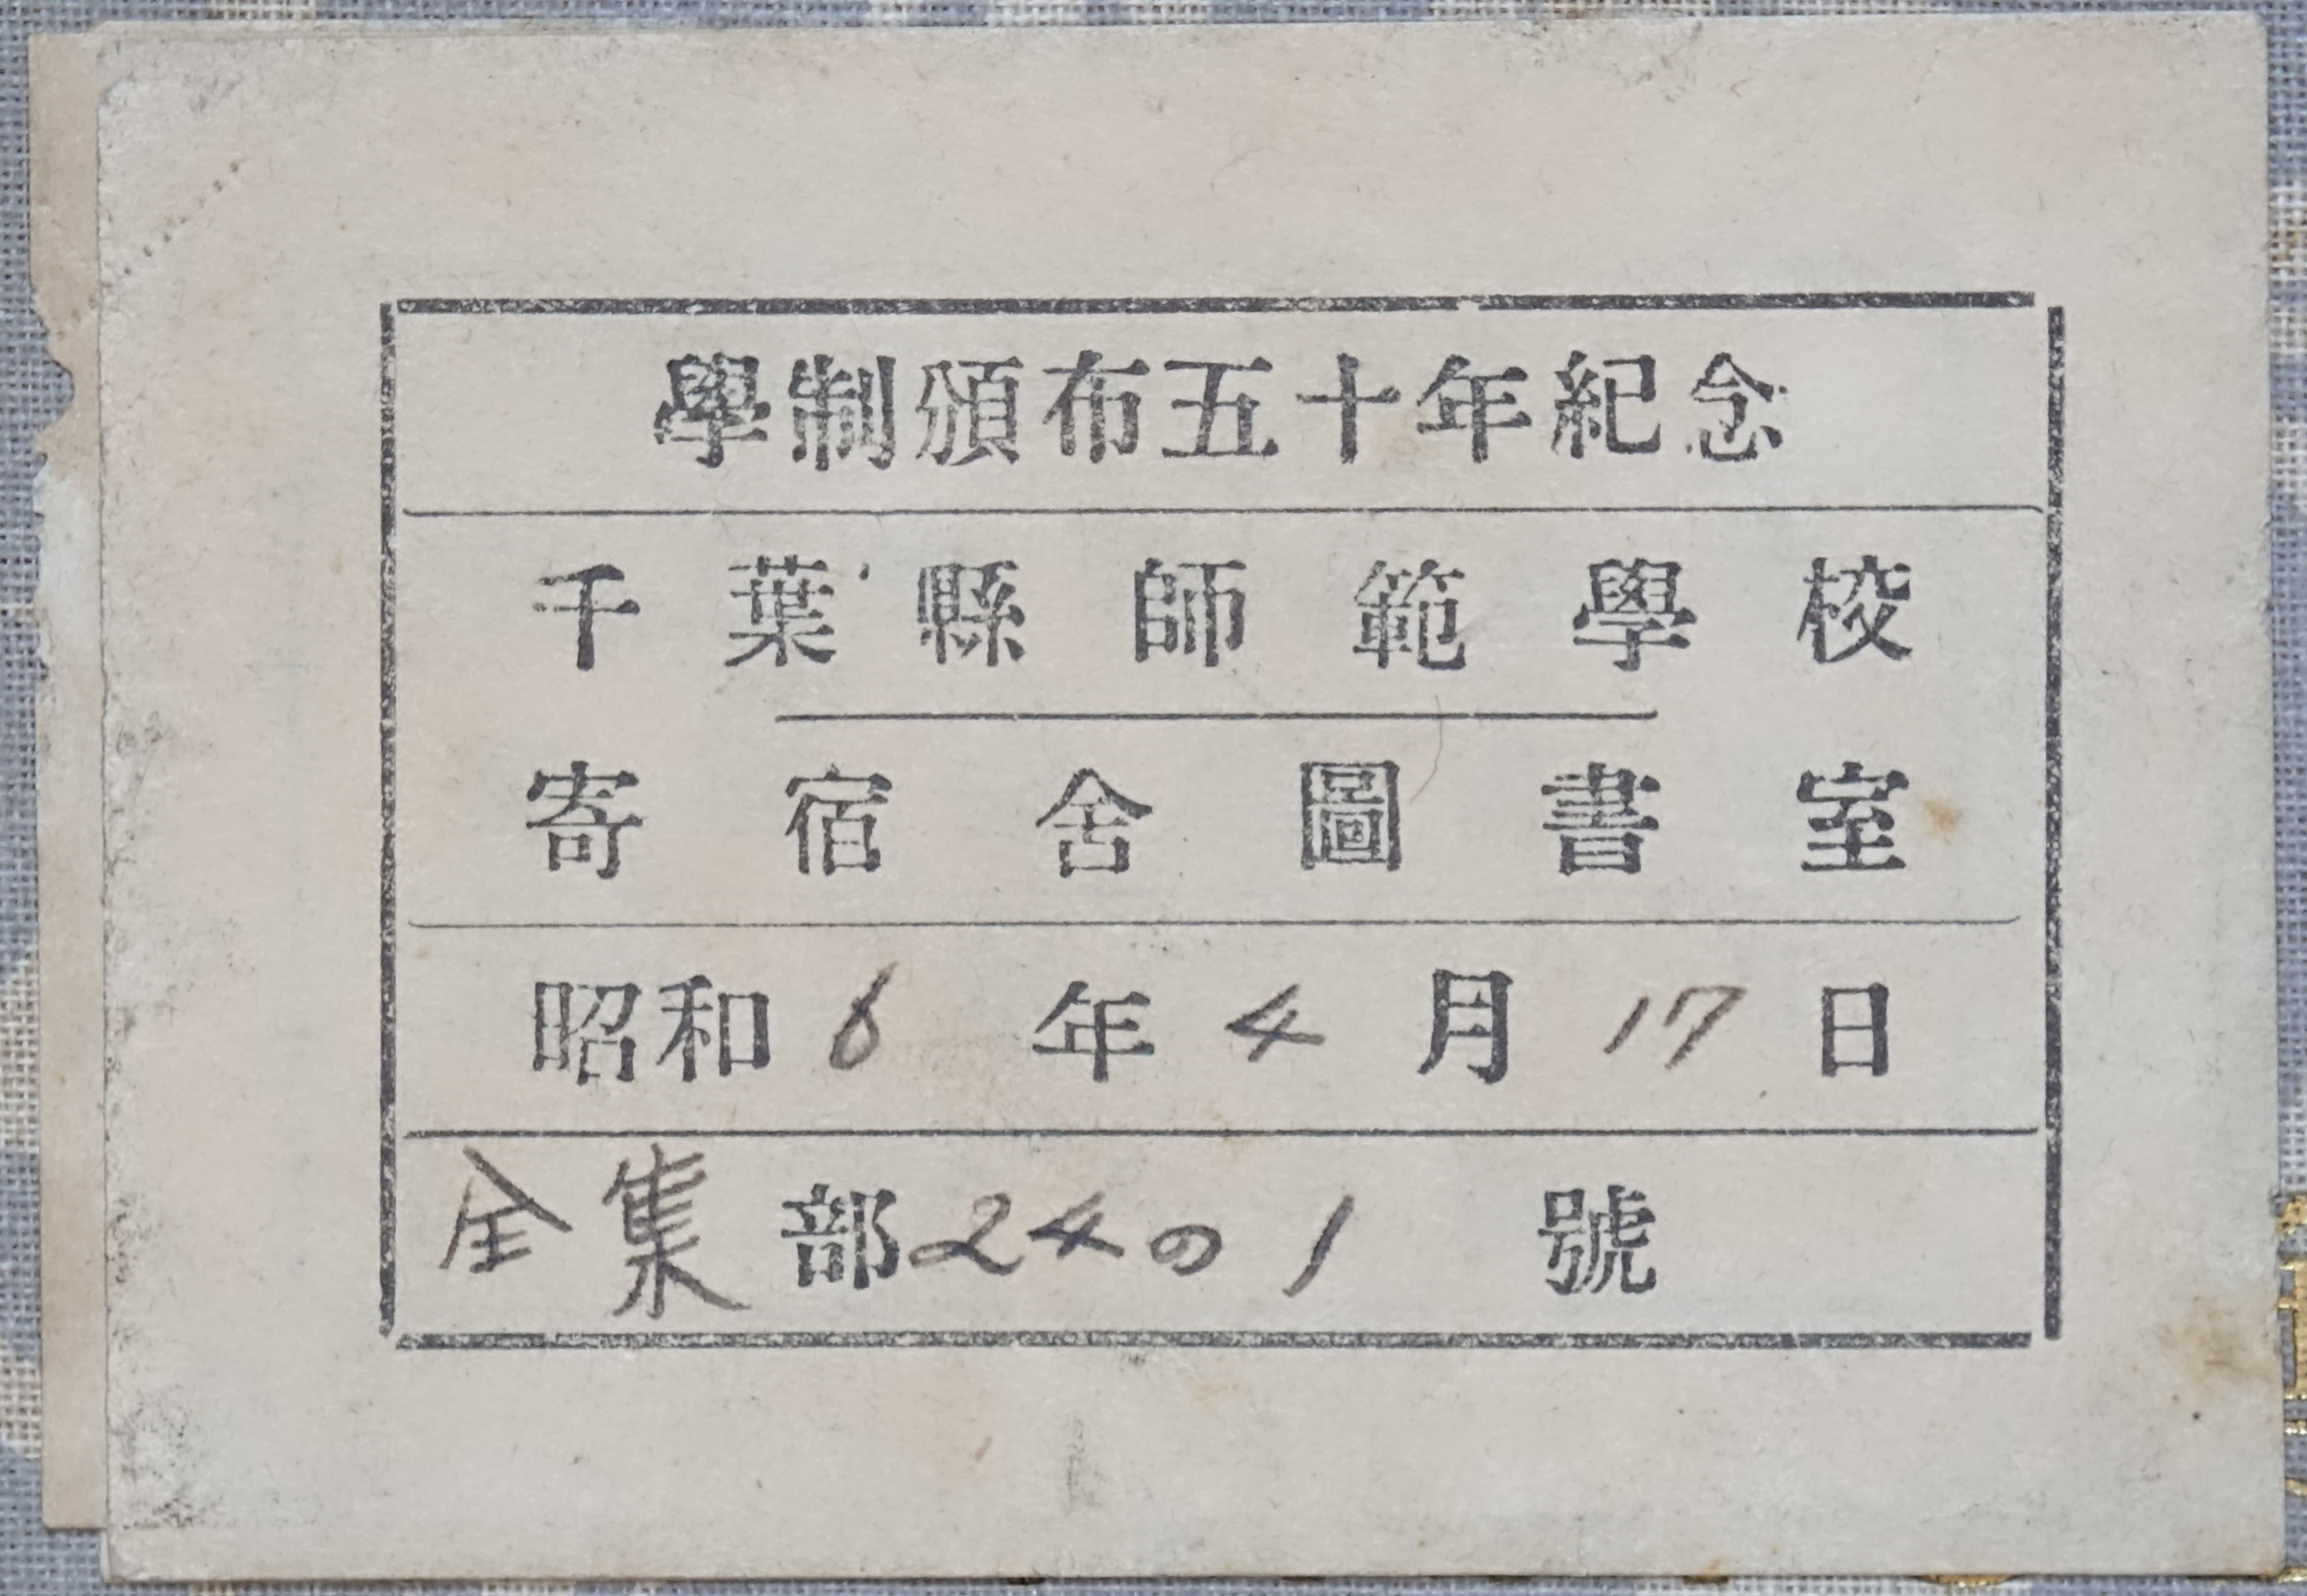 學制頒布五十年紀念
千葉縣師範學校
寄宿舍圖書室
昭和6年4月17日
全集部24の1號